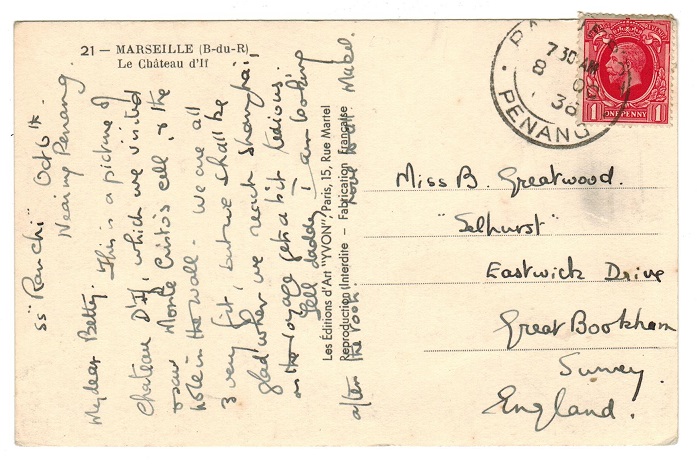 21 — MARSEILLE (B-du-R)
Le Château d'If
SS "Ranchi" Oct 6th.
Nearing Penang.
My dear Betty. This is a picture of
Chateau D'If, which we visited
& saw Monte Cristo's cell, & the
hole in the wall. We are all
3 very fit, but we shall be
glad when we reach Shanghai,
as the voyage gets a bit tedious.
Tell daddy I am looking
after the rook. Love to all Mabel.
Les Éditions d'Art "YVON", Paris, 15, Rue Martel
Reproduction Interdite — Fabrication Française
7 30 AM
8 OC
36
PENANG
ONE PENNY
1 1
Miss B. Greatwood.
"Selhurst"
Eastwick Drive
Great Bookham
Surrey.
England.